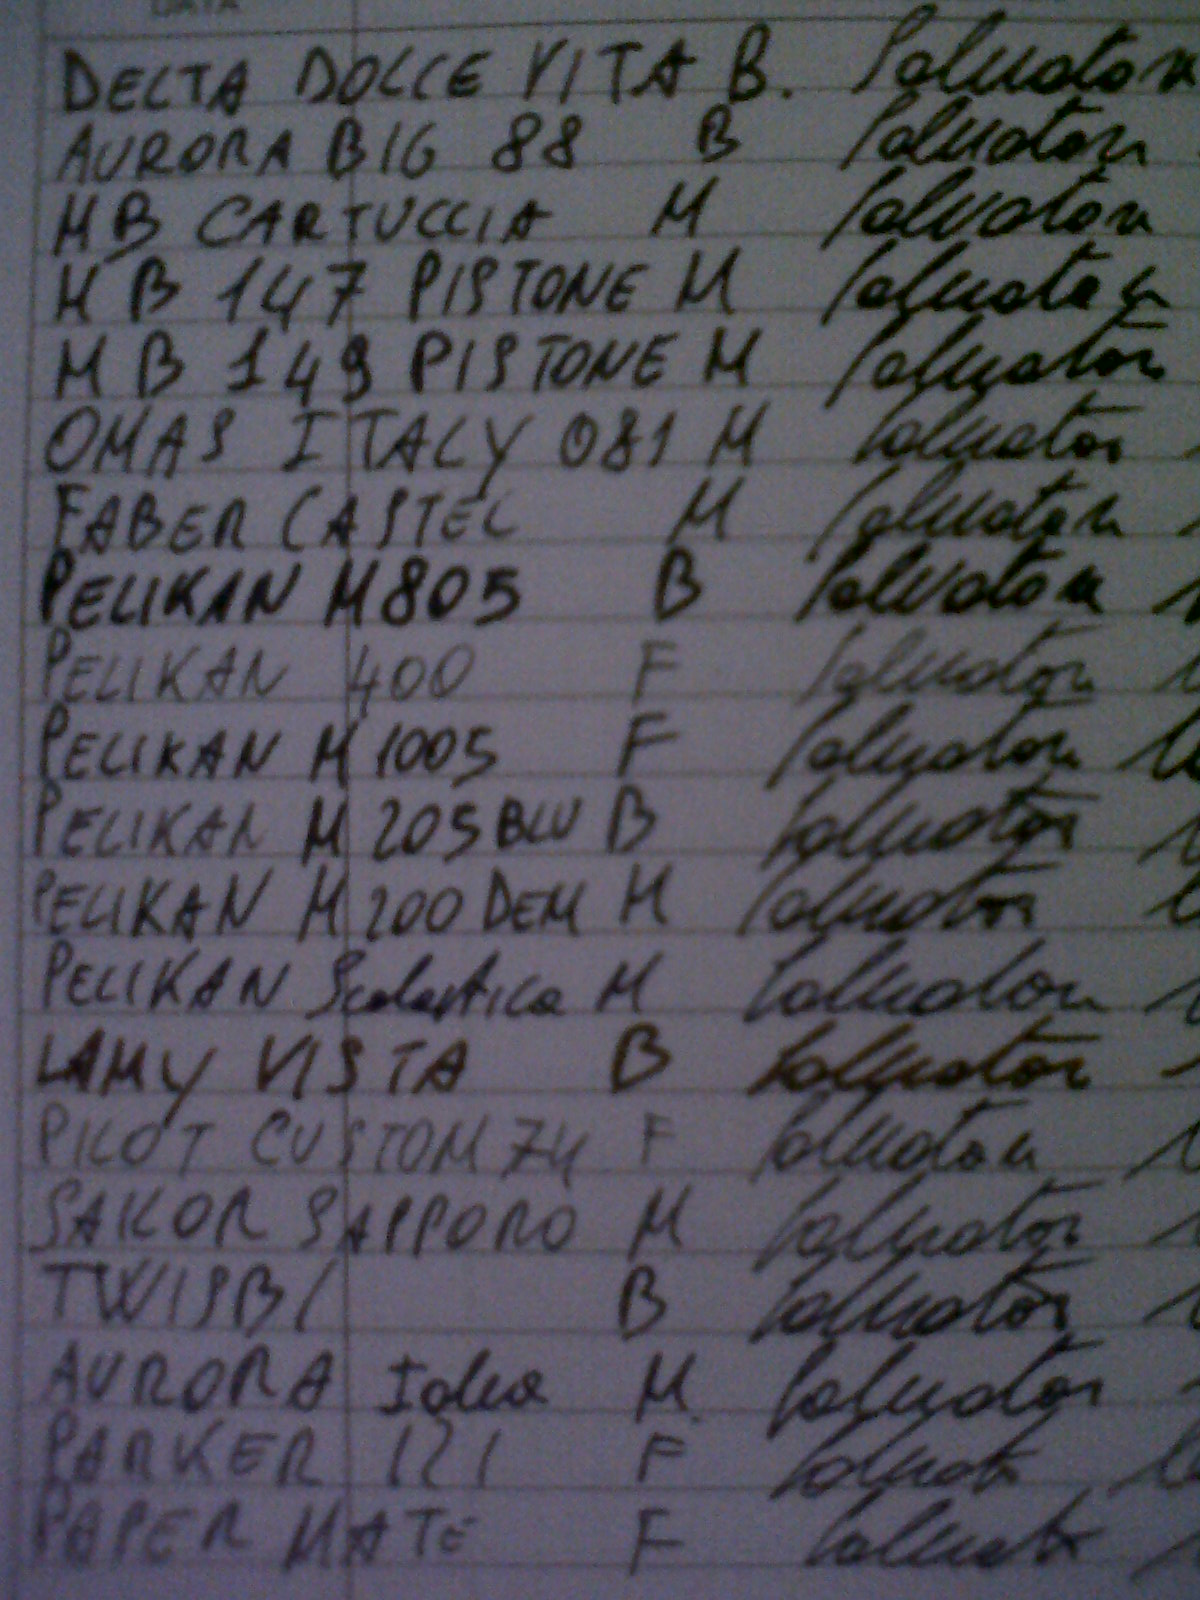 DATA
DELTA DOLCE VITA B. Salvatore
AURORA BIG 88 B Salvatore
MB CARTUCCIA M Salvatore
MB 147 PISTONE M Salvatore
MB 149 PISTONE M Salvatore
OMAS ITALY 081 M Salvatore
FABER CASTEL M Salvatore
PELIKAN M805 B Salvatore
PELIKAN 400 F Salvatore
PELIKAN M1005 F Salvatore
PELIKAN M205 BLU B Salvatore
PELIKAN M200 DEM M Salvatore
PELIKAN Scolastica M Salvatore
LAMY VISTA B Salvatore
PILOT CUSTOM 74 F Salvatore
SAILOR SAPPORO M Salvatore
TWISBI B Salvatore
AURORA Idea M. Salvatore
PARKER 121 F Salvatore
PAPER MATE F Salvatore